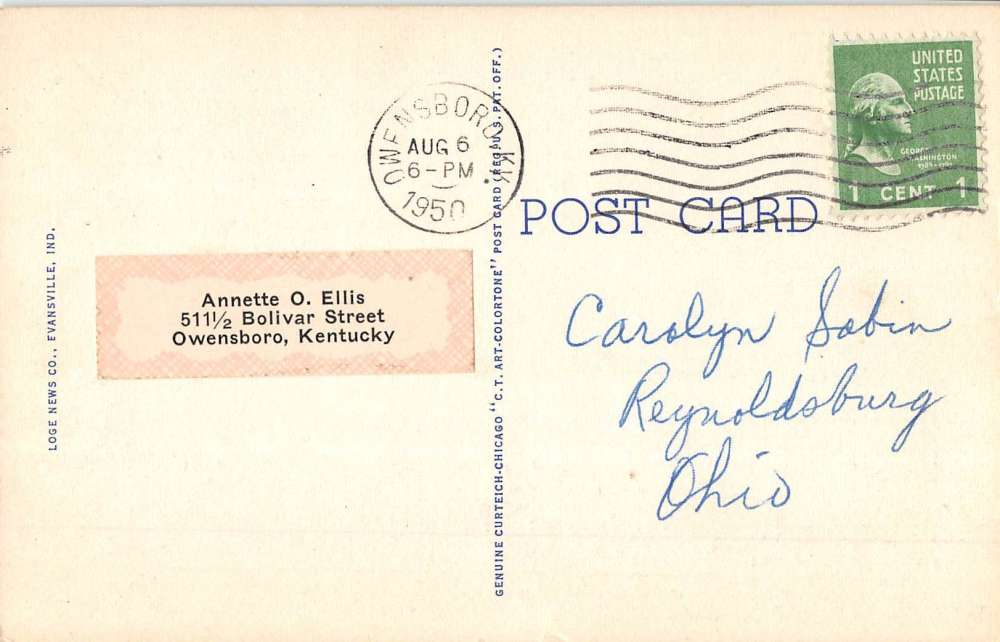 LOGE NEWS CO., EVANSVILLE, IND.
Annette O. Ellis
511½ Bolivar Street
Owensboro, Kentucky
OWENSBORO KY.
AUG 6
6-PM
1950
GENUINE CURTEICH-CHICAGO "C.T. ART-COLORTONE" POST CARD (REG. U.S. PAT. OFF.)
POST CARD
UNITED
STATES
POSTAGE
GEORGE
WASHINGTON
1 CENT 1
Carolyn Sabin
Reynoldsburg
Ohio